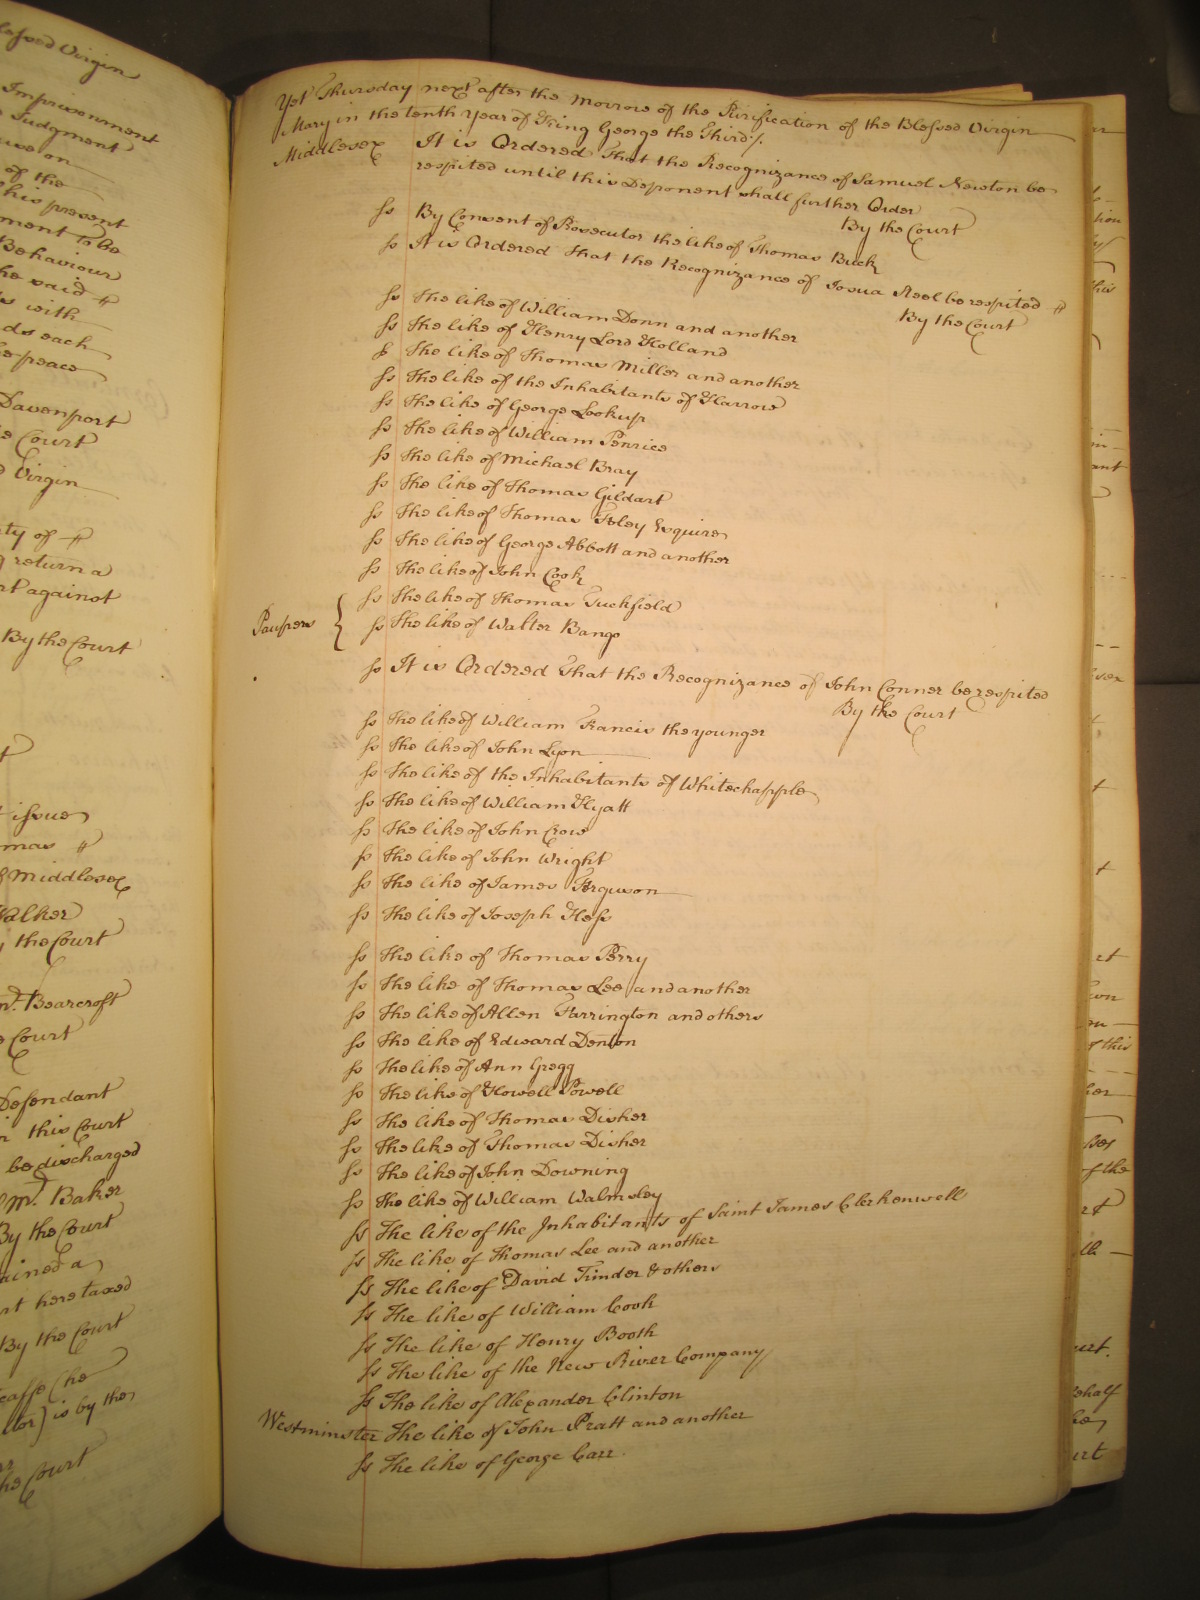 lessed Virgin
Imprisonment
Judgment
on
of the
his present
ment to be
Behaviour
he said
s with
ds each
he peace
Davenport
e Court
Virgin
ty of
g return a
rt against
By the Court
t issue
mas
Middlesex
Walker
y the Court
Mr. Bearcroft
e Court
Defendant
in this Court
be discharged
Mr. Baker
By the Court
ained a
rt here taxed
By the Court
(he
tor) is by the
he Court
Yet Thursday next after the Morrow of the Purification of the Blessed Virgin
Mary in the tenth Year of King George the Third/.
Middlesex It is Ordered That the Recognizance of Samuel Newton be
respited until this Deponent shall further Order
By the Court
Ss By Consent of Prosecutor the like of Thomas Buck
Ss It is Ordered That the Recognizance of Josua Steel be respited
By the Court
Ss The like of William Donn and another
Ss The like of Henry Lord Holland
Ss The like of Thomas Miller and another
Ss The like of the Inhabitants of Harrow
Ss The like of George Lookup
Ss The like of William Penrice
Ss The like of Michael Bray
Ss The like of Thomas Gildart
Ss The like of Thomas Foley Esquire
Ss The like of George Abbott and another
Ss The like of John Cook
Ss The like of Thomas Tuckfield
Paupers { Ss The like of Walter Bango
Ss It is Ordered That the Recognizance of John Conner be respited
By the Court
Ss The like of William Francis the younger
Ss The like of John Lyon
Ss The like of the Inhabitants of Whitechapple
Ss The like of William Hyatt
Ss The like of John Crow
Ss The like of John Wright
Ss The like of James Ferguson
Ss The like of Joseph Hess
Ss The like of Thomas Perry
Ss The like of Thomas Lee and another
Ss The like of Allen Farrington and others
Ss The like of Edward Denton
Ss The like of Ann Gregg
Ss The like of Howell Powell
Ss The like of Thomas Disher
Ss The like of Thomas Disher
Ss The like of John Downing
Ss The like of William Walmsley
Ss The like of the Inhabitants of Saint James Clerkenwell
Ss The like of Thomas Lee and another
Ss The like of David Trinder & others
Ss The like of William Cook
Ss The like of Henry Booth
Ss The like of the New River Company
Ss The like of Alexander Clinton
Westminster The like of John Pratt and another
Ss The like of George Carr